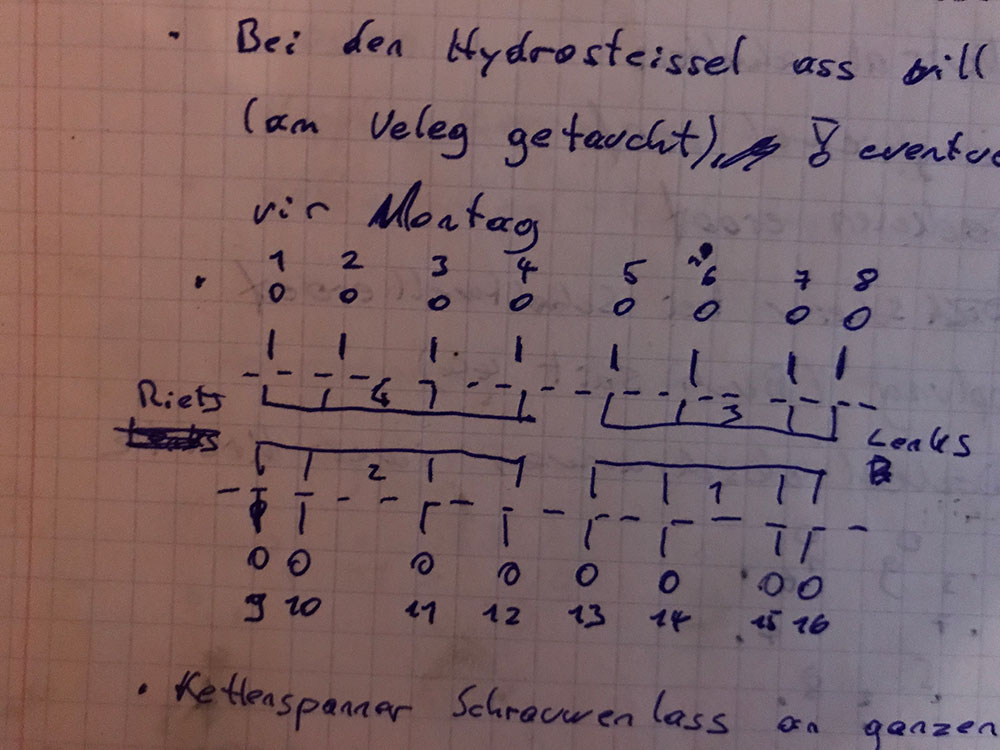 · Bei den Hydrosteissel ass will
(am Veleg getaucht), eventue
vir Montag
· 1 2 3 4 5 6 7 8
0 0 0 0 0 0 0 0
Riets 4 3 Lenks
2 1
0 0 0 0 0 0 0 0
9 10 11 12 13 14 15 16
· Kettenspanner Schrauwen lass an ganzen